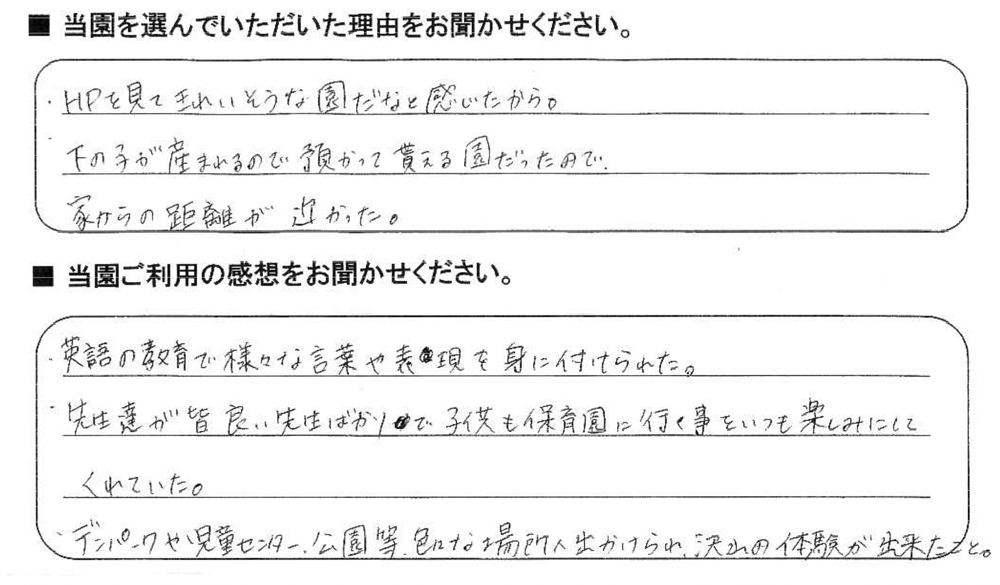 ■ 当園を選んでいただいた理由をお聞かせください。
・HPを見てきれいそうな園だなと感じたから。
・下の子が産まれるので預かって貰える園だったので、
家からの距離が近かった。
■ 当園ご利用の感想をお聞かせください。
・英語の教育で様々な言葉や表現を身に付けられた。
・先生達が皆良い先生ばかりで子供も保育園に行く事をいつも楽しみにして
くれていた。
・デンパークや児童センター、公園等、色々な場所へ出かけられ、沢山の体験が出来たこと。